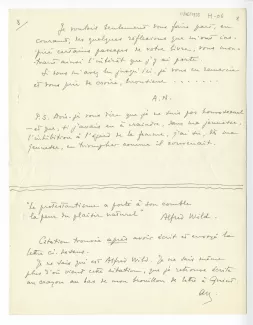 8
M-26
1
Je voulais seulement vous faire part, en
courant, des quelques réflexions que m'ont ins-
piré certains passages de votre livre, vous mon-
trant ainsi l'intérêt que j'y ai porté.
Si vous m'avez lu jusqu'ici, je vous en remercie
et vous prie de croire, Monsieur .......
A.N.
P.S. Dois-je vous dire que je ne suis pas homosexuel
— et que, si j'avais eu à craindre, dans ma jeunesse,
l'inhibition à l'égard de la femme, j'ai su, dès ma
jeunesse, en triompher comme il convenait.
"Le protestantisme a porté à son comble
la peur du plaisir naturel"
Alfred Wild.
Citation trouvée après avoir écrit et envoyé la
lettre ci-dessus.
Je ne sais qui est Alfred Wild. Je ne sais même
plus d'où vient cette citation, que je retrouve écrite
au crayon au bas de mon brouillon de lettre à Guérin